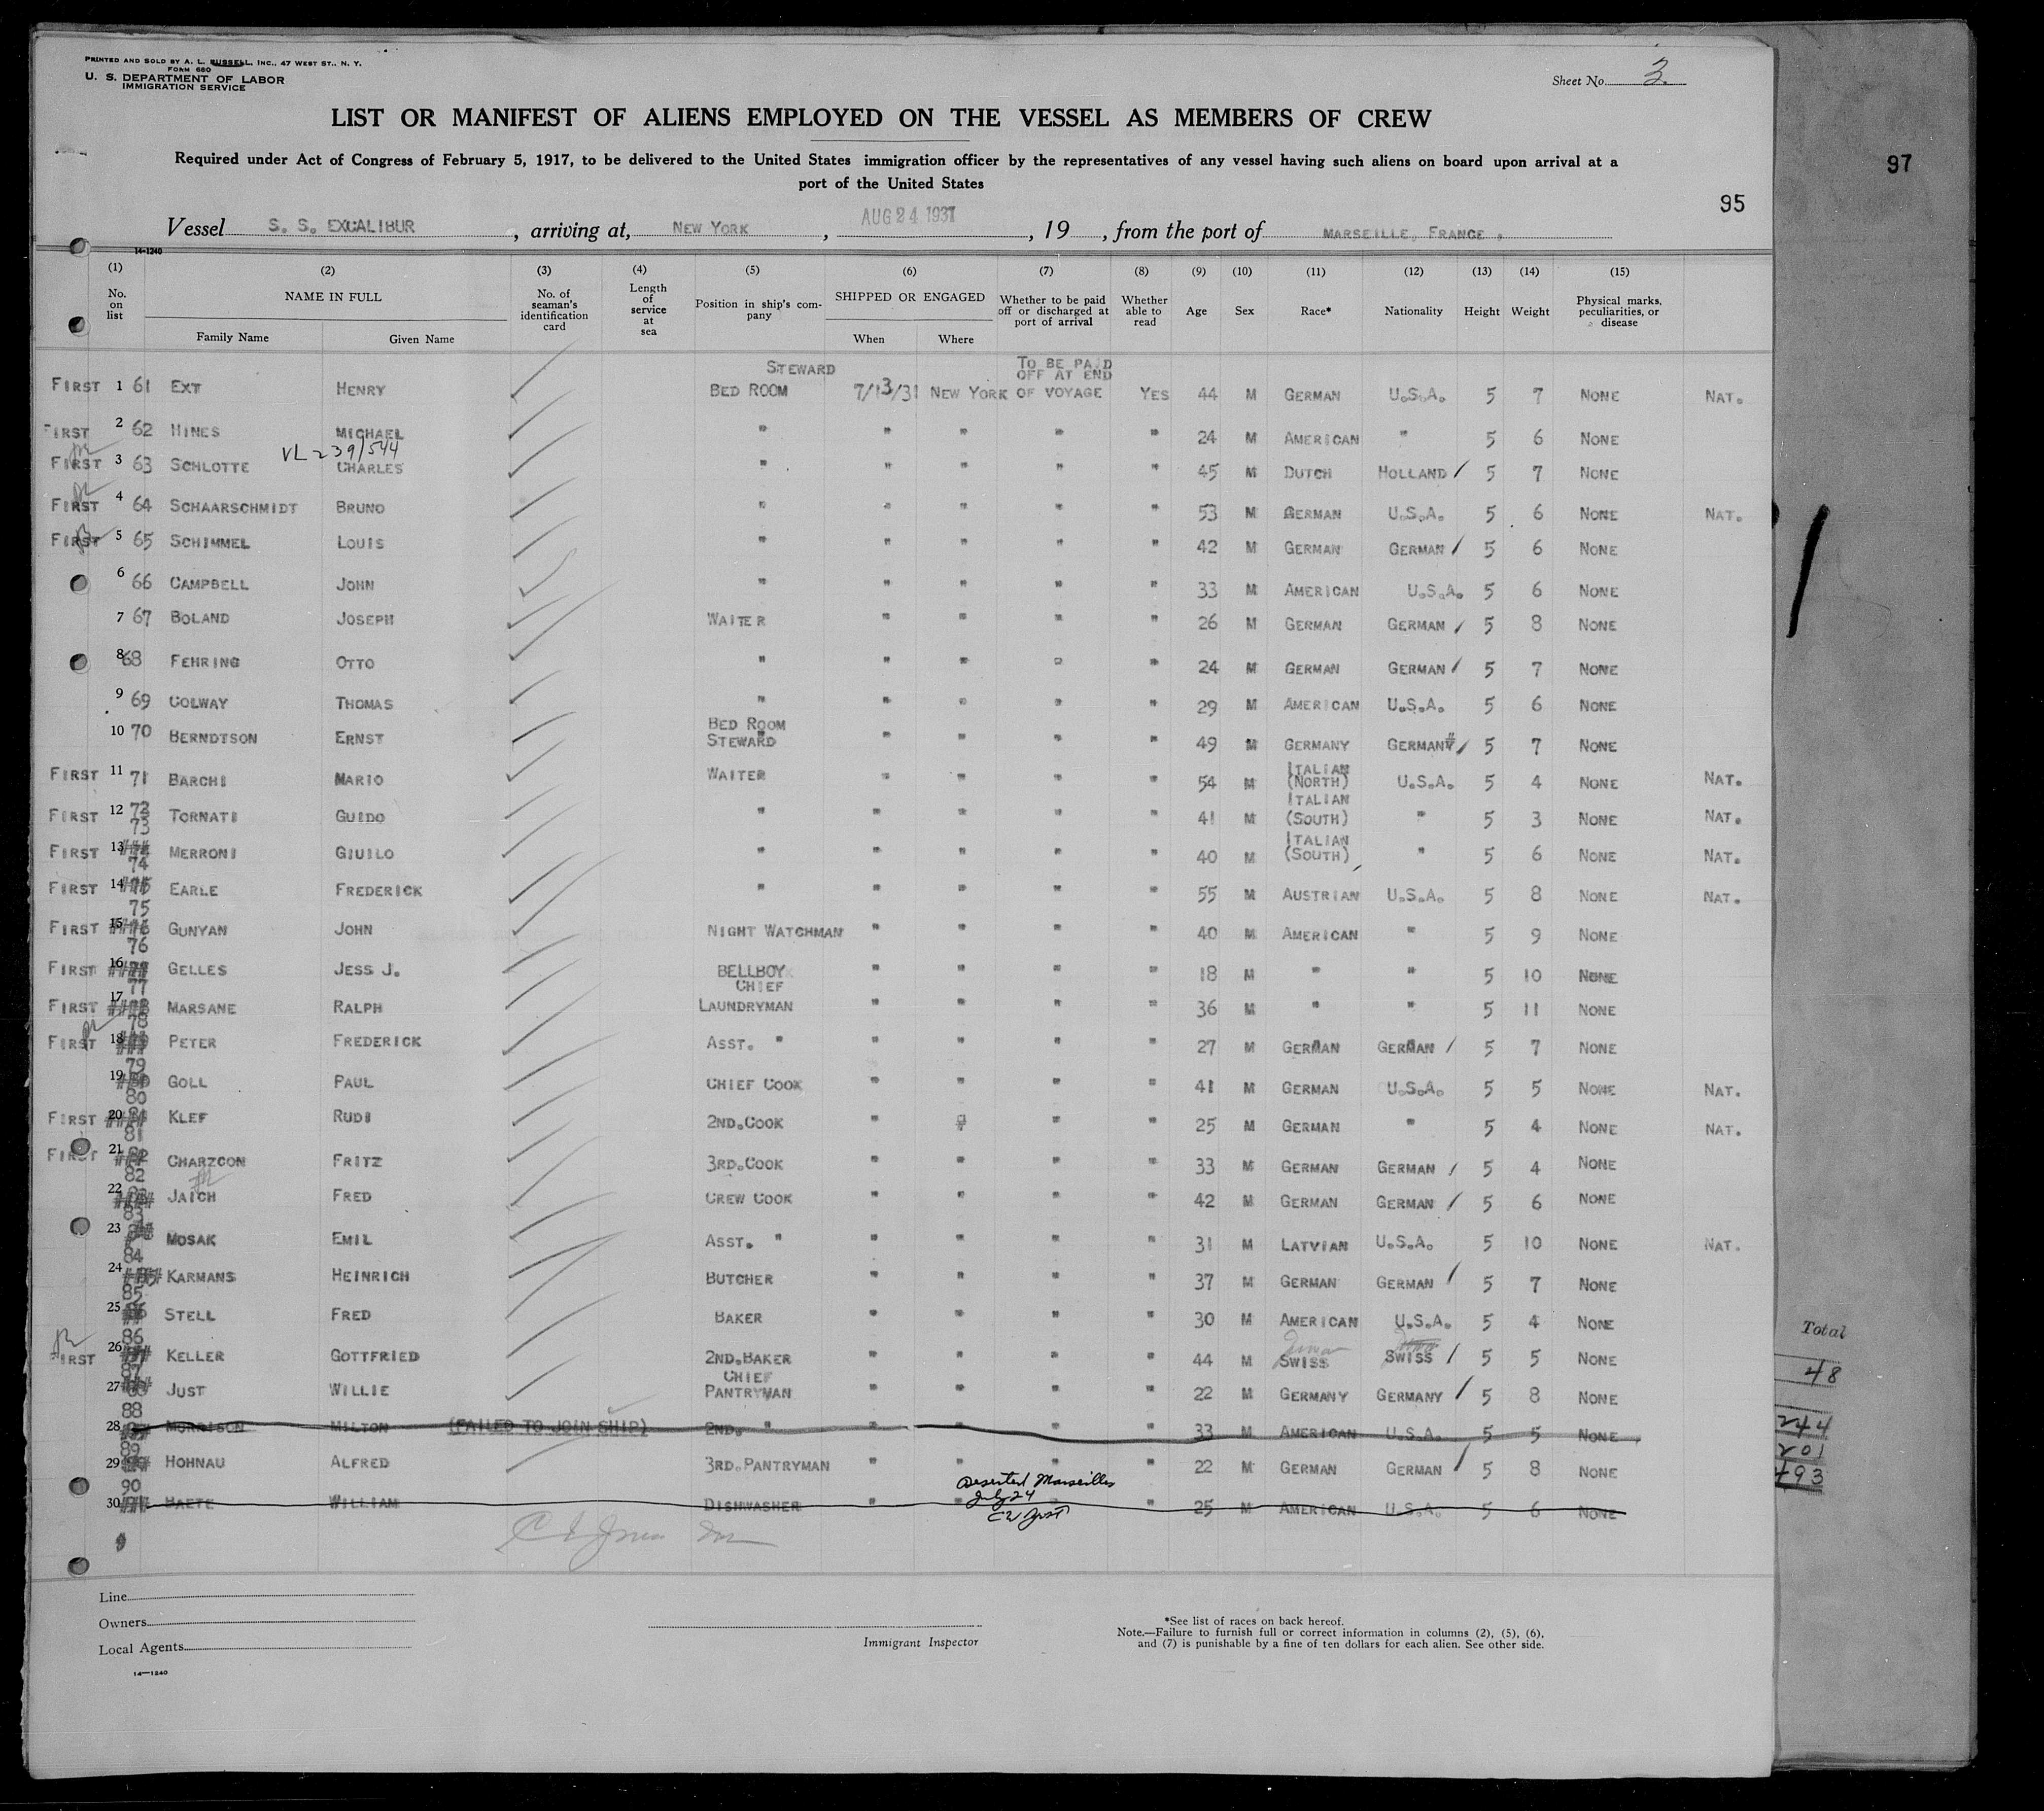 PRINTED AND SOLD BY A. L. RUSSELL, INC., 47 WEST ST., N. Y.
FORM 680
U. S. DEPARTMENT OF LABOR
IMMIGRATION SERVICE
Sheet No. 3.
LIST OR MANIFEST OF ALIENS EMPLOYED ON THE VESSEL AS MEMBERS OF CREW
Required under Act of Congress of February 5, 1917, to be delivered to the United States immigration officer by the representatives of any vessel having such aliens on board upon arrival at a
port of the United States
97
95
Vessel S. S. EXCALIBUR, arriving at, NEW YORK, AUG 24 1931, 19, from the port of MARSEILLE, FRANCE.
14-1240
(1) (2) (3) (4) (5) (6) (7) (8) (9) (10) (11) (12) (13) (14) (15)
No. on list NAME IN FULL Family Name Given Name No. of seaman's identification card Length of service at sea Position in ship's company SHIPPED OR ENGAGED When Where Whether to be paid off or discharged at port of arrival Whether able to read Age Sex Race* Nationality Height Weight Physical marks, peculiarities, or disease
FIRST 1 61 EXT HENRY STEWARD BED ROOM 7/13/31 NEW YORK TO BE PAID OFF AT END OF VOYAGE YES 44 M GERMAN U.S.A. 5 7 NONE NAT.
FIRST 2 62 HINES MICHAEL " " " " " 24 M AMERICAN " 5 6 NONE
VL-239/544
FIRST 3 63 SCHLOTTE CHARLES " " " " " 45 M DUTCH HOLLAND 5 7 NONE
FIRST 4 64 SCHAARSCHMIDT BRUNO " " " " " 53 M GERMAN U.S.A. 5 6 NONE NAT.
FIRST 5 65 SCHIMMEL LOUIS " " " " " 42 M GERMAN GERMAN 5 6 NONE
6 66 CAMPBELL JOHN " " " " " 33 M AMERICAN U.S.A. 5 6 NONE
7 67 BOLAND JOSEPH WAITER " " " " 26 M GERMAN GERMAN 5 8 NONE
8 68 FEHRING OTTO " " " " " 24 M GERMAN GERMAN 5 7 NONE
9 69 COLWAY THOMAS " " " " " 29 M AMERICAN U.S.A. 5 6 NONE
10 70 BERNDTSON ERNST BED ROOM STEWARD " " " " 49 M GERMANY GERMANY 5 7 NONE
FIRST 11 71 BARCHI MARIO WAITER " " " " 54 M ITALIAN (NORTH) U.S.A. 5 4 NONE NAT.
FIRST 12 72 TORNATI GUIDO " " " " " 41 M ITALIAN (SOUTH) " 5 3 NONE NAT.
FIRST 13 73 MERRONI GIUILO " " " " " 40 M ITALIAN (SOUTH) " 5 6 NONE NAT.
FIRST 14 74 EARLE FREDERICK " " " " " 55 M AUSTRIAN U.S.A. 5 8 NONE NAT.
FIRST 15 75 GUNYAN JOHN NIGHT WATCHMAN " " " " 40 M AMERICAN " 5 9 NONE
FIRST 16 76 GELLES JESS J. BELLBOY " " " " 18 M " " 5 10 NONE
FIRST 17 77 MARSANE RALPH CHIEF LAUNDRYMAN " " " " 36 M " " 5 11 NONE
FIRST 18 78 PETER FREDERICK ASST. " " " " " 27 M GERMAN GERMAN 5 7 NONE
19 79 GOLL PAUL CHIEF COOK " " " " 41 M GERMAN U.S.A. 5 5 NONE NAT.
FIRST 20 80 KLEF RUDI 2ND.COOK " " " " 25 M GERMAN " 5 4 NONE NAT.
FIRST 21 81 CHARZCON FRITZ 3RD.COOK " " " " 33 M GERMAN GERMAN 5 4 NONE
22 82 JAICH FRED CREW COOK " " " " 42 M GERMAN GERMAN 5 6 NONE
23 83 MOSAK EMIL ASST. " " " " " 31 M LATVIAN U.S.A. 5 10 NONE NAT.
24 84 KARMANS HEINRICH BUTCHER " " " " 37 M GERMAN GERMAN 5 7 NONE
25 85 STELL FRED BAKER " " " " 30 M AMERICAN U.S.A. 5 4 NONE
FIRST 26 86 KELLER GOTTFRIED 2ND.BAKER " " " " 44 M SWISS SWISS 5 5 NONE
27 87 JUST WILLIE CHIEF PANTRYMAN " " " " 22 M GERMANY GERMANY 5 8 NONE
28 88 MORRISON MILTON (FAILED TO JOIN SHIP) 2ND. " " " " " 33 M AMERICAN U.S.A. 5 5 NONE
29 89 HOHNAU ALFRED 3RD.PANTRYMAN " " " " 22 M GERMAN GERMAN 5 8 NONE
Deserted Marseilles
July 24
30 90 BAETE WILLIAM DISHWASHER " " " " 25 M AMERICAN U.S.A. 5 6 NONE
Total
48
244
201
493
Line
Owners
Local Agents
14—1240
Immigrant Inspector
*See list of races on back hereof.
Note.—Failure to furnish full or correct information in columns (2), (5), (6),
and (7) is punishable by a fine of ten dollars for each alien. See other side.